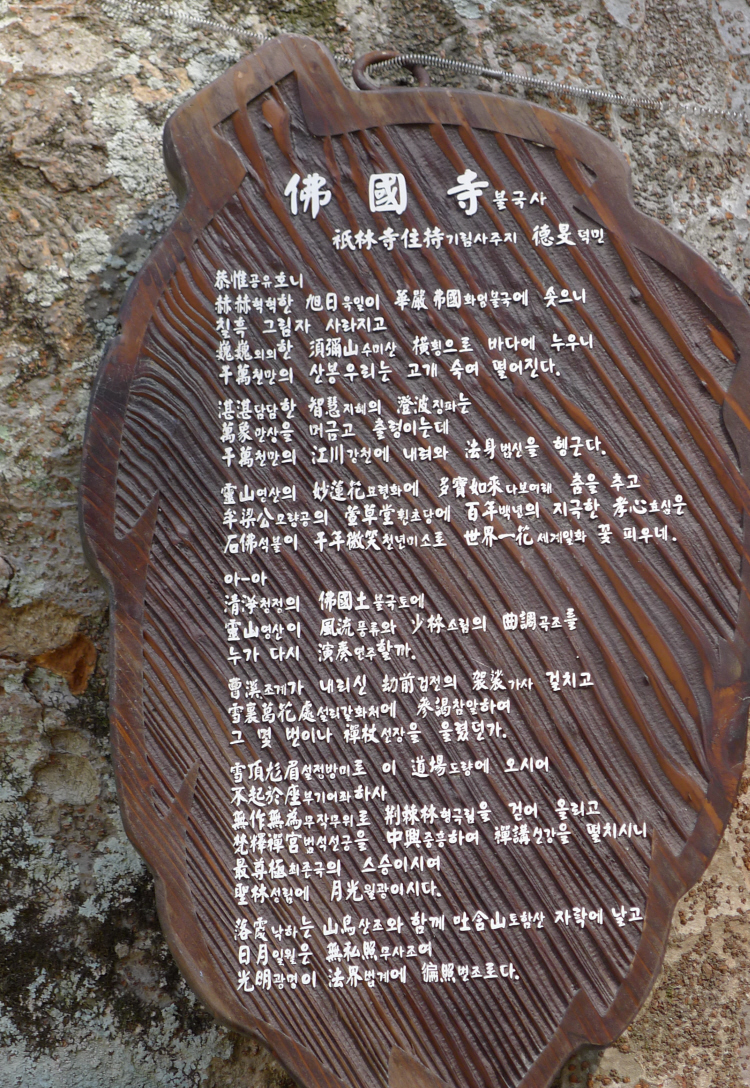 佛國寺불국사
祇林寺住持기림사주지 德旻덕민
恭惟공유호니
赫赫혁혁한 旭日욱일이 華嚴弗國화엄불국에 솟으니
칠흑 그림자 사라지고
巍巍외외한 須彌山수미산 橫횡으로 바다에 누우니
千萬천만의 산봉우리는 고개 숙여 떨어진다.
湛湛담담한 智慧지혜의 澄波징파는
萬象만상을 머금고 출렁이는데
千萬천만의 江川강천에 내려와 法身법신을 헹군다.
靈山영산의 妙蓮花묘련화에 多寶如來다보여래 춤을 추고
牟梁公모량공의 萱草堂훤초당에 百年백년의 지극한 孝心효심은
石佛석불이 千年微笑천년미소로 世界一花세계일화 꽃 피우네.
아-아
淸淨청정의 佛國土불국토에
靈山영산이 風流풍류와 少林소림의 曲調곡조를
누가 다시 演奏연주할까.
曹溪조계가 내리신 劫前겁전의 袈裟가사 걸치고
雪裏葛花處설리갈화처에 參謁참알하여
그 몇 번이나 禪杖선장을 울렸던가.
雪頂尨眉설정방미로 이 道場도량에 오시어
不起於座부기어좌하사
無作無爲무작무위로 荊棘林형극림을 걷어 올리고
梵釋禪宮범석선궁을 中興중흥하여 禪講선강을 떨치시니
最尊極최존극의 스승이시여
聖林성림에 月光월광이시다.
落霞낙하는 山鳥산조와 함께 吐含山토함산 자락에 날고
日月일월은 無私照무사조여
光明광명이 法界법계에 徧照변조로다.